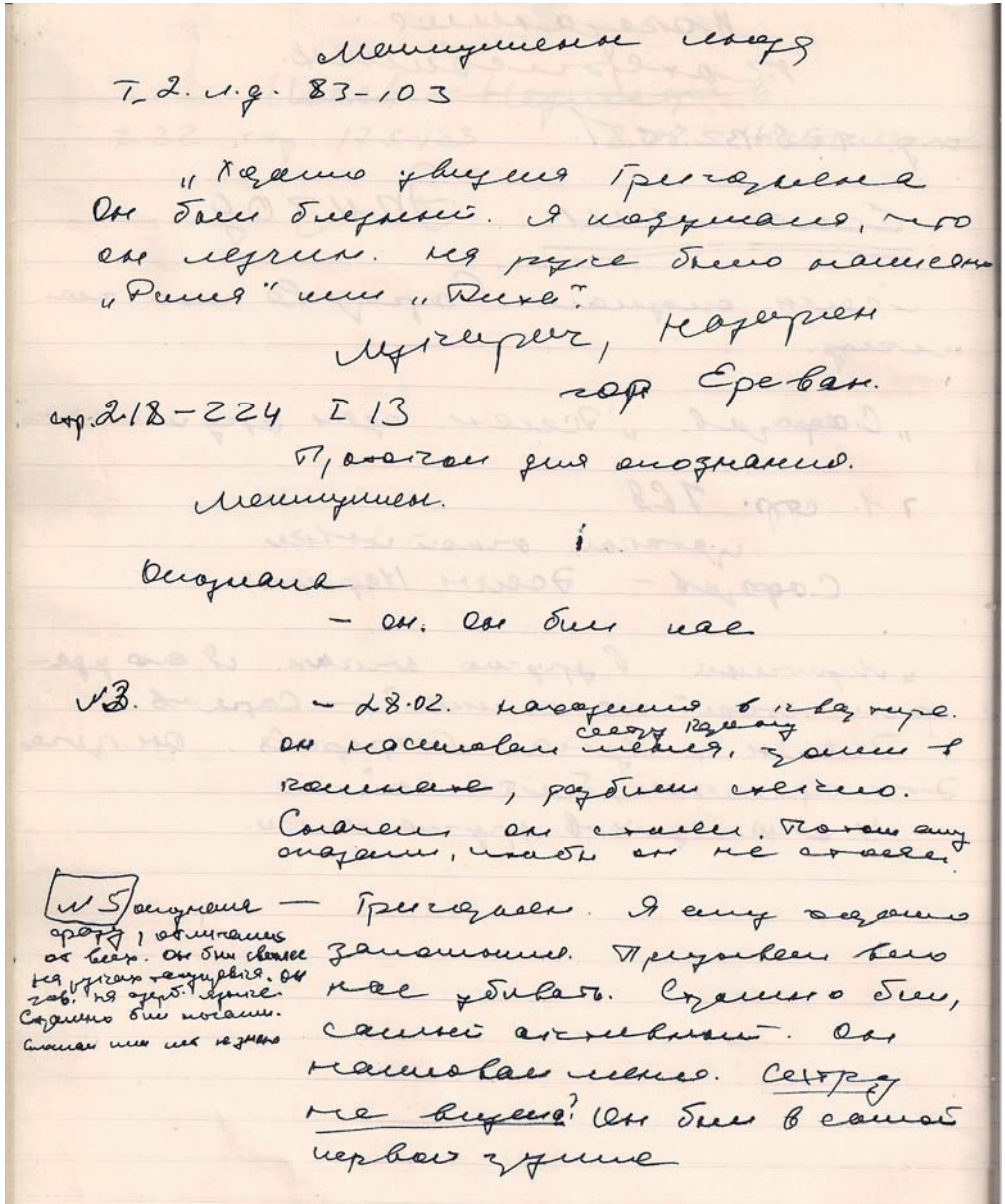 Мелкумян Люда
Т-2. л.д. 83-103
„Хорошо увидела Григоряна
Он был бледный. Я подумала, что
он лезгин. на руке было написано
„Рита“ или „Рижа“
Ереван.
стр. 218-224 Т 13
Протокол для опознания.
Мелкумян.
Опознала
- он. Он бил нас
№3. - 28.02. находился в квартире.
сестру Карину
он насиловал меня,
комнате, разбили стекло.
Сначала он стоял. Потом ему
сказали, чтобы он не стоял.
№5 опознала
сразу, отличался
от всех. Он был светлее
на руках татуировка. он
гов. на азерб. языке.
Страшно бил ногами.
Сломал или нет не знаю
- Григорьян. Я ему хорошо
запомнила. Призывал всех
нас убивать. Страшно бил,
самый активный. Он
насиловал меня. Сестру
не видела? Он был в самой
первой группе